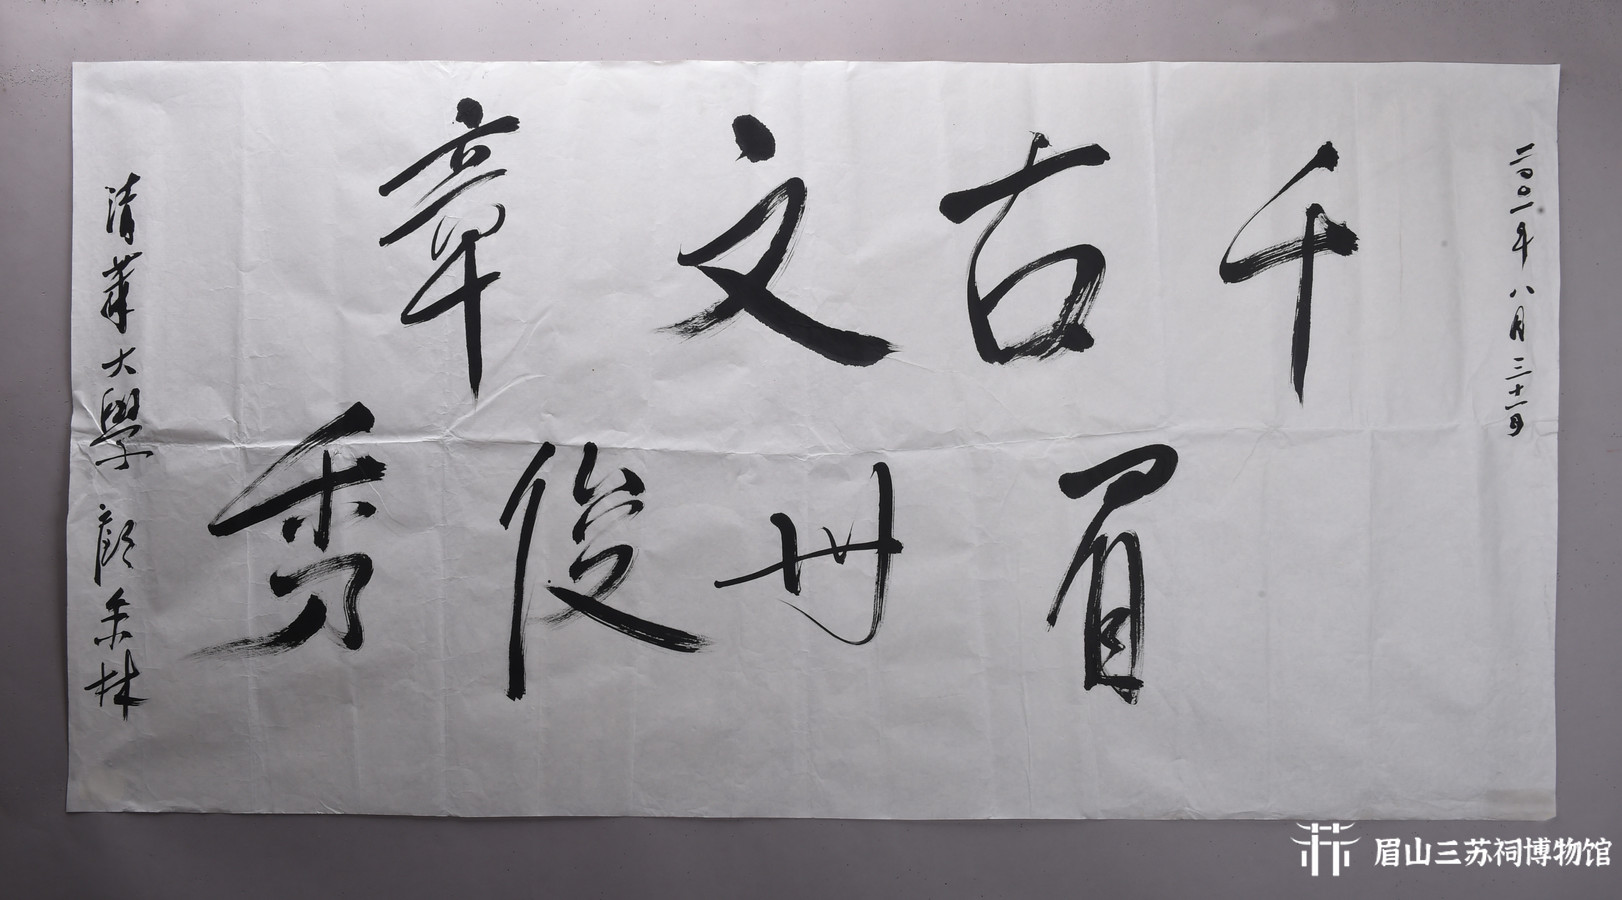 二〇〇一年八月三十一日
千古文章
眉州俊秀
清華大學 顧秉林
眉山三苏祠博物馆